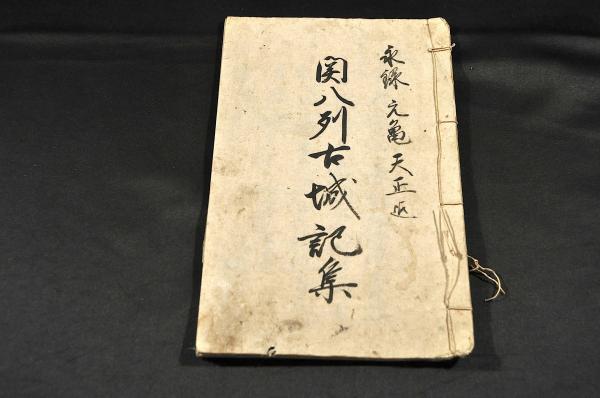 永録 元亀 天正迄
関八列古城記集